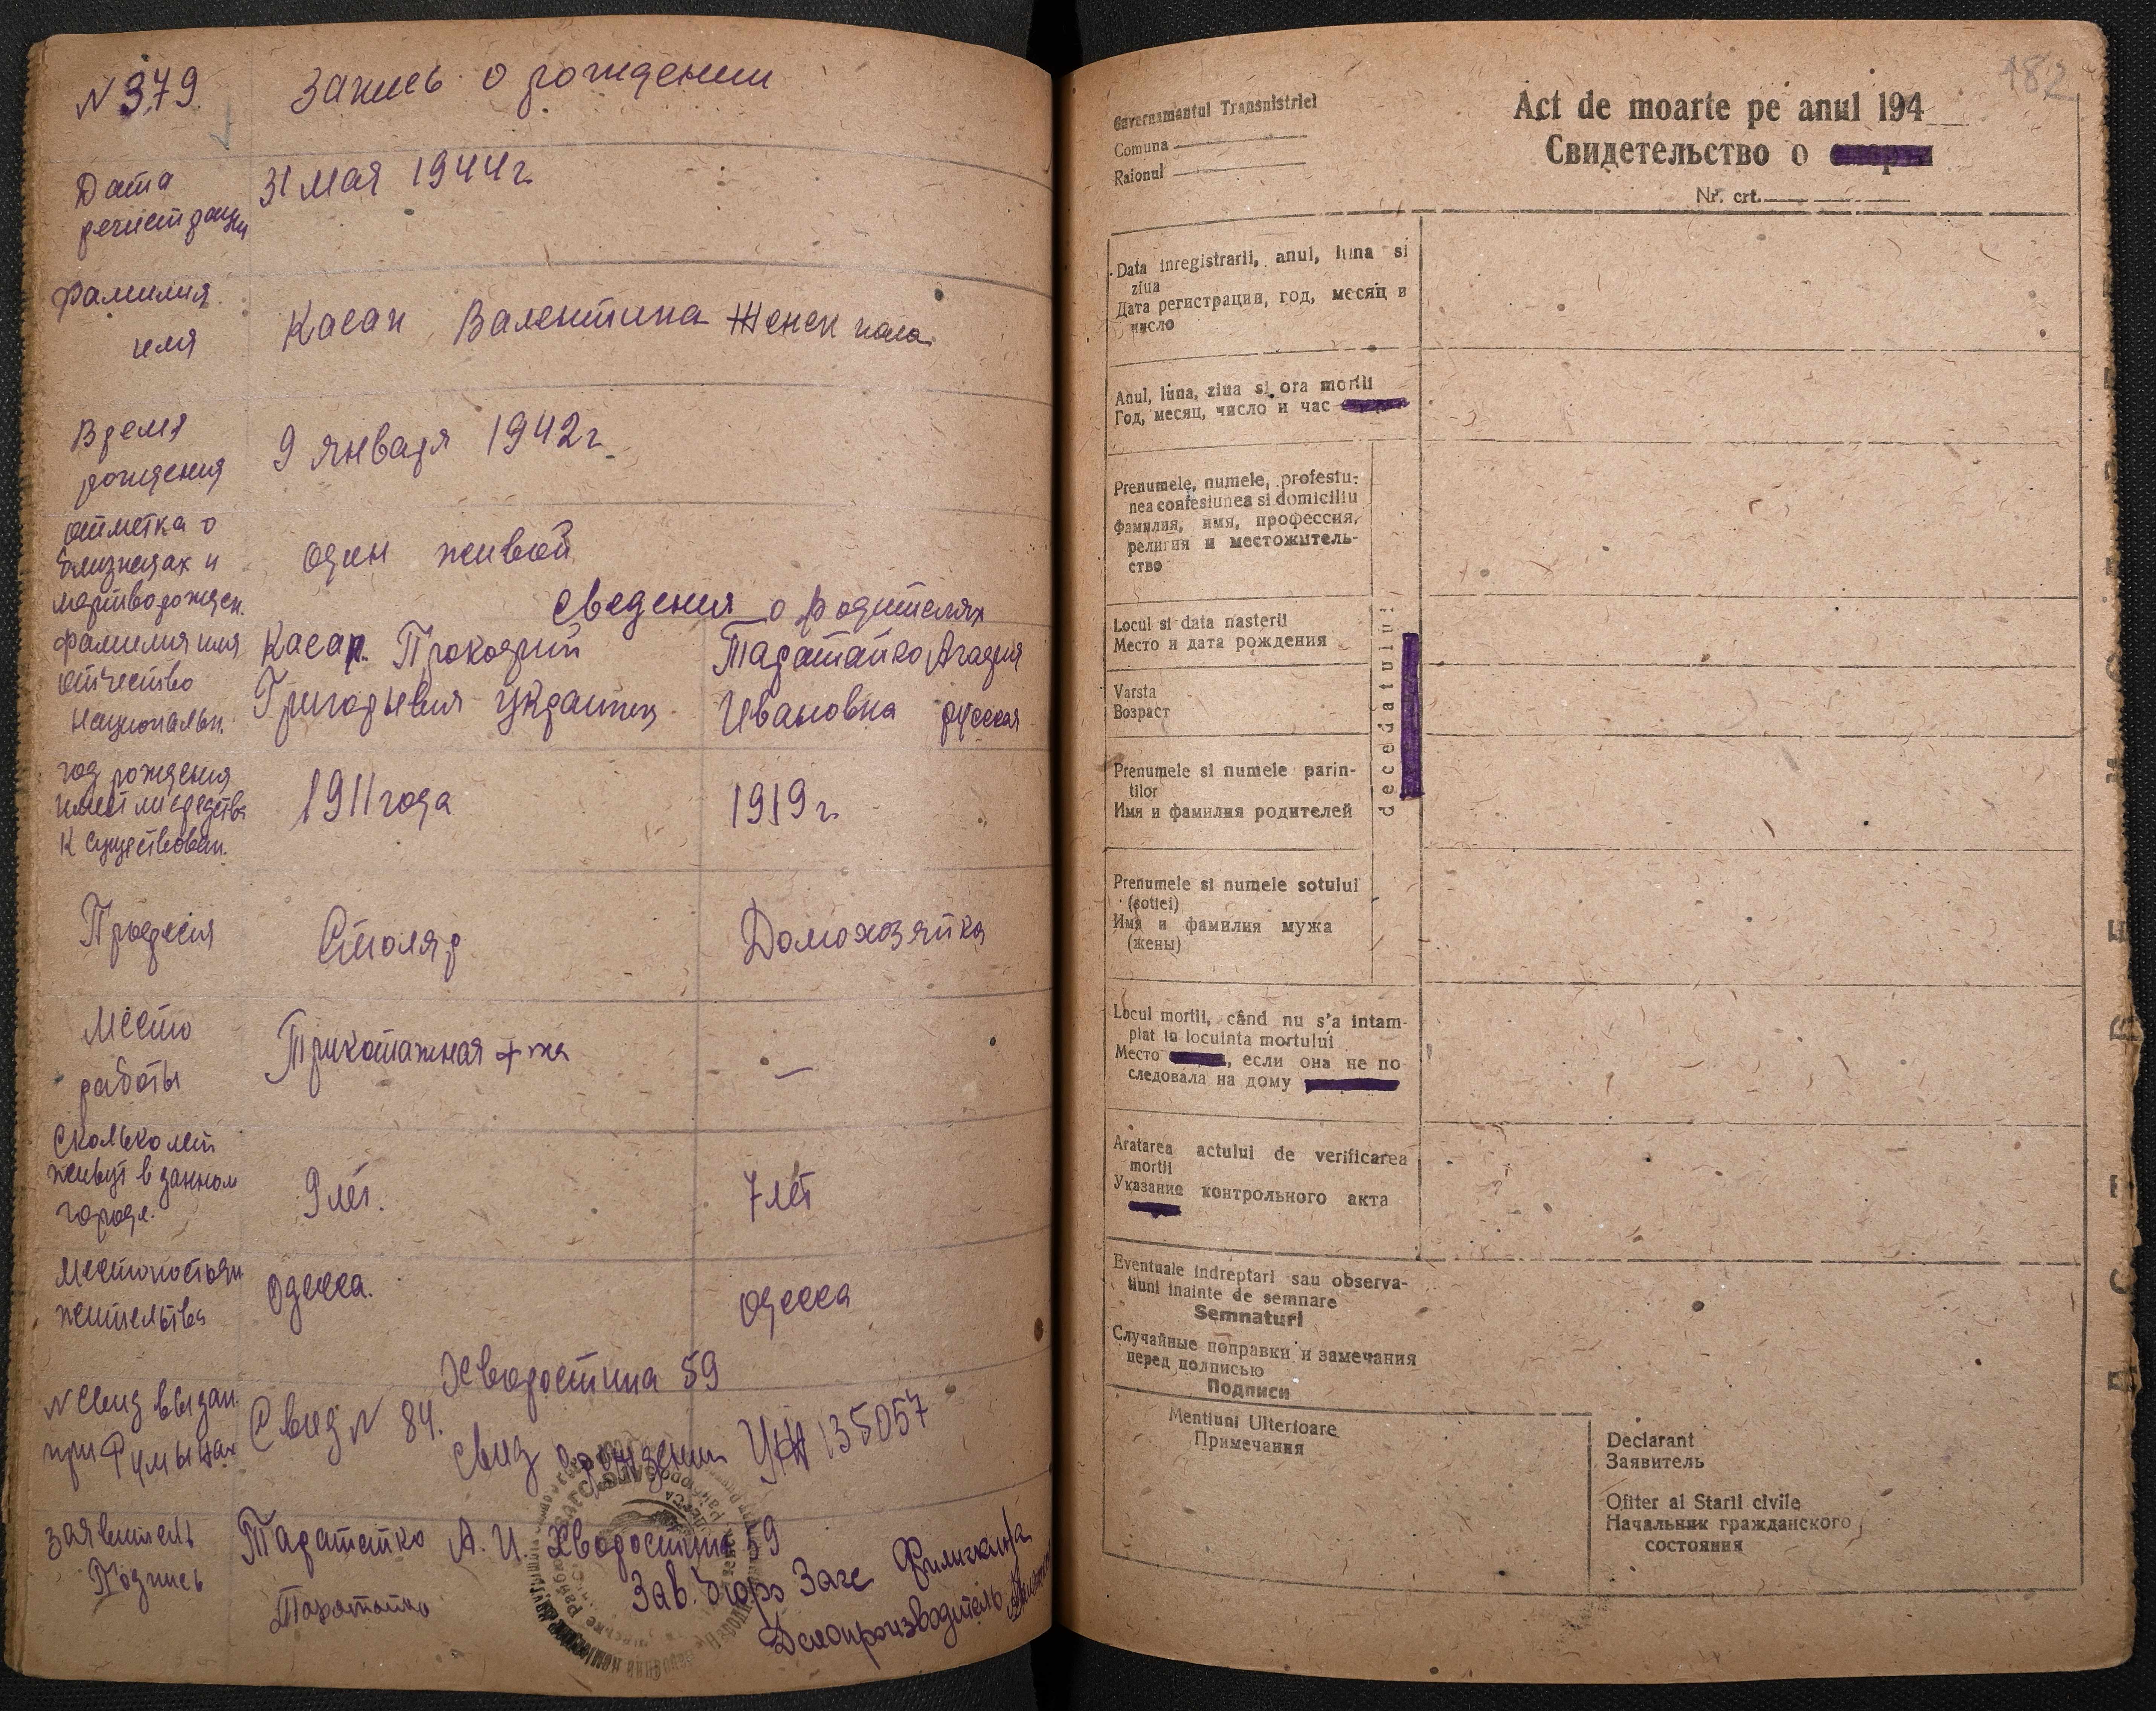 N 379. Запись о рождении
Дата
регистрации
31 мая 1944 г.
Фамилия
имя
Касап Валентина Женск пола.
Время
рождения
9 января 1942 г.
отметка о
близнецах и
мертворожден.
один живой
Сведения о родителях
Фамилия имя
отчество
национальн.
Касап. Прокофий
Григорьевич украинец
Таратайко Агафия
Ивановна русская
год рождения
имеет ли средства
к существован.
1911 года
1919 г.
Профессия
Столяр
Домохозяйка
Место
работы
Трикотажная ф-ка
—
Сколько лет
живут в данном
городе.
9 лет.
7 лет
Место постоян
жительства
Одесса.
Одесса
Хворостина 59
N Свид выдан.
при Румынах
Свид N 84.
свид о рождении УЖ 135057
Заявитель
Подпись
Таратайко А. И. Хворостина 59
Таратайко
Зав. Бюро Загс
Делопроизводитель
182
Guvernamantul Transnistriei
Comuna
Raionul
Act de moarte pe anul 194
Свидетельство о
Nr. crt.
Data inregistrarii, anul, luna si
ziua
Дата регистрации, год, месяц и
число
Anul, luna, ziua si ora mortii
Год, месяц, число и час
Prenumele, numele, profesiu-
nea confesiunea si domiciliu
Фамилия, имя, профессия,
религия и местожитель-
ство
Locul si data nasterii
Место и дата рождения
Varsta
Возраст
Prenumele si numele parin-
tilor
Имя и фамилия родителей
Prenumele si numele sotului
(sotiei)
Имя и фамилия мужа
(жены)
decedatului
Locul mortii, când nu s'a intam-
plat in locuinta mortului
Место , если она не по
следовала на дому
Aratarea actului de verificarea
mortii
Указание контрольного акта
Eventuale indreptari sau observa-
tiuni inainte de semnare
Semnaturi
Случайные поправки и замечания
перед подписью
Подписи
Mentiuni Ulterioare
Примечания
Declarant
Заявитель
Ofiter al Starii civile
Начальник гражданского
состояния